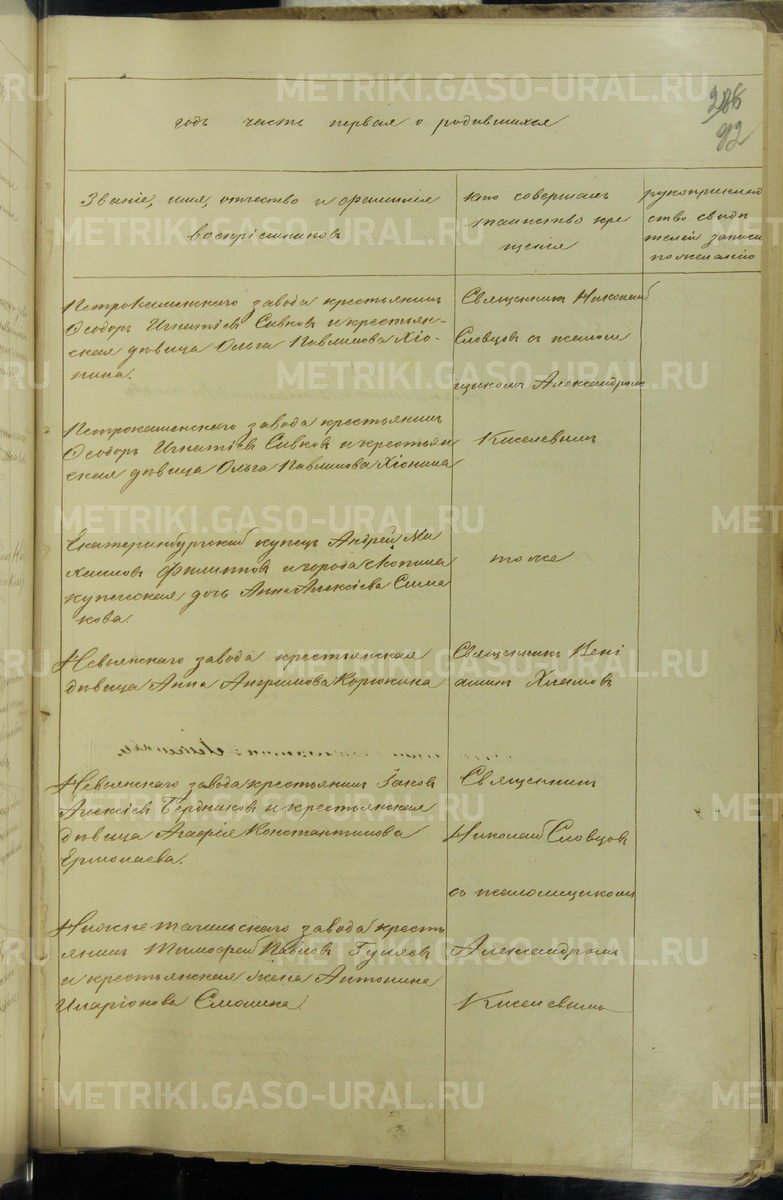 286
92
годъ часть первая о родившихся
Званіе, имя, отчество и фамилія
воспріемниковъ
кто совершалъ
таинство кре
щенія
рукоприклад
ство свидѣ
телей записи
по желанію
Петрокаменскаго завода крестьянинъ
Ѳеодоръ Игнатіевъ Сивковъ и крестьян-
ская дѣвица Ольга Павлинова Хіо-
нина.
Священникъ Николай
Словцовъ съ псаломщ
щикомъ Александромъ
Петрокаменскаго завода крестьянинъ
Ѳеодоръ Игнатіевъ Сивковъ и крестьян
ская дѣвица Ольга Павлинова Хіонина
Киселевымъ
Екатеринбургскій купецъ Андрей Ма
ксимовъ Филитовъ и города Скопина
купеческая дочь Анна Алексіева Сима
кова.
тоже
Невьянскаго завода крестьянская
дѣвица Анна Анфимова Корюкина
Священникъ Вені
аминъ Хламовъ
Невьянскаго завода крестьянинъ Іаковъ
Алексіевъ Бердниковъ и крестьянская
дѣвица Агафія Константинова
Ермолаева.
Священникъ
Николай Словцовъ
съ псаломщикомъ
Нижнетагильскаго завода кресть
янинъ Тимофей Павловъ Гуляевъ
и крестьянская жена Антонина
Иларіонова Смолина.
Александромъ
Киселевымъ
METRIKI.GASO-URAL.RU